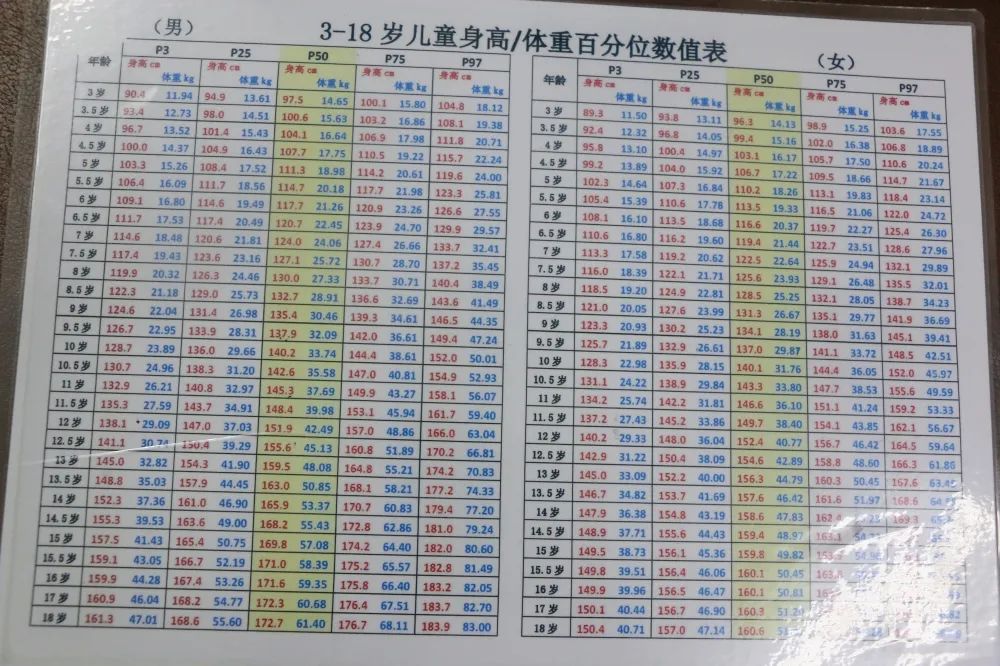 3-18 岁儿童身高/体重百分位数值表
（男）
年龄 P3 P25 P50 P75 P97
身高 cm 体重 kg 身高 cm 体重 kg 身高 cm 体重 kg 身高 cm 体重 kg 身高 cm 体重 kg
3 岁 90.4 11.94 94.9 13.61 97.5 14.65 100.1 15.80 104.8 18.12
3.5 岁 93.4 12.73 98.0 14.51 100.6 15.63 103.2 16.86 108.1 19.38
4 岁 96.7 13.52 101.4 15.43 104.1 16.64 106.9 17.98 111.8 20.71
4.5 岁 100.0 14.37 104.9 16.43 107.7 17.75 110.5 19.22 115.7 22.24
5 岁 103.3 15.26 108.4 17.52 111.3 18.98 114.2 20.61 119.6 24.00
5.5 岁 106.4 16.09 111.7 18.56 114.7 20.18 117.7 21.98 123.3 25.81
6 岁 109.1 16.80 114.6 19.49 117.7 21.26 120.9 23.26 126.6 27.55
6.5 岁 111.7 17.53 117.4 20.49 120.7 22.45 123.9 24.70 129.9 29.57
7 岁 114.6 18.48 120.6 21.81 124.0 24.06 127.4 26.66 133.7 32.41
7.5 岁 117.4 19.43 123.6 23.16 127.1 25.72 130.7 28.70 137.2 35.45
8 岁 119.9 20.32 126.3 24.46 130.0 27.33 133.7 30.71 140.4 38.49
8.5 岁 122.3 21.18 129.0 25.73 132.7 28.91 136.6 32.69 143.6 41.49
9 岁 124.6 22.04 131.4 26.98 135.4 30.46 139.3 34.61 146.5 44.35
9.5 岁 126.7 22.95 133.9 28.31 137.9 32.09 142.0 36.61 149.4 47.24
10 岁 128.7 23.89 136.0 29.66 140.2 33.74 144.4 38.61 152.0 50.01
10.5 岁 130.7 24.96 138.3 31.20 142.6 35.58 147.0 40.81 154.9 52.93
11 岁 132.9 26.21 140.8 32.97 145.3 37.69 149.9 43.27 158.1 56.07
11.5 岁 135.3 27.59 143.7 34.91 148.4 39.98 153.1 45.94 161.7 59.40
12 岁 138.1 29.09 147.0 37.03 151.9 42.49 157.0 48.86 166.0 63.04
12.5 岁 141.1 30.74 150.4 39.29 155.6 45.13 160.8 51.89 170.2 66.81
13 岁 145.0 32.82 154.3 41.90 159.5 48.08 164.8 55.21 174.2 70.83
13.5 岁 148.8 35.03 157.9 44.45 163.0 50.85 168.1 58.21 177.2 74.33
14 岁 152.3 37.36 161.0 46.90 165.9 53.37 170.7 60.83 179.4 77.20
14.5 岁 155.3 39.53 163.6 49.00 168.2 55.43 172.8 62.86 181.0 79.24
15 岁 157.5 41.43 165.4 50.75 169.8 57.08 174.2 64.40 182.0 80.60
15.5 岁 159.1 43.05 166.7 52.19 171.0 58.39 175.2 65.57 182.8 81.49
16 岁 159.9 44.28 167.4 53.26 171.6 59.35 175.8 66.40 183.2 82.05
17 岁 160.9 46.04 168.2 54.77 172.3 60.68 176.4 67.51 183.7 82.70
18 岁 161.3 47.01 168.6 55.60 172.7 61.40 176.7 68.11 183.9 83.00
（女）
年龄 P3 P25 P50 P75 P97
身高 cm 体重 kg 身高 cm 体重 kg 身高 cm 体重 kg 身高 cm 体重 kg 身高 cm 体重 kg
3 岁 89.3 11.50 93.8 13.11 96.3 14.13 98.9 15.25 103.6 17.55
3.5 岁 92.4 12.32 96.8 14.05 99.4 15.16 102.0 16.38 106.8 18.89
4 岁 95.8 13.10 100.4 14.97 103.1 16.17 105.7 17.50 110.6 20.24
4.5 岁 99.2 13.89 104.0 15.92 106.7 17.22 109.5 18.66 114.7 21.67
5 岁 102.3 14.64 107.3 16.84 110.2 18.26 113.1 19.83 118.4 23.14
5.5 岁 105.4 15.39 110.6 17.78 113.5 19.33 116.5 21.06 122.0 24.72
6 岁 108.1 16.10 113.5 18.68 116.6 20.37 119.7 22.27 125.4 26.30
6.5 岁 110.6 16.80 116.2 19.60 119.4 21.44 122.7 23.51 128.6 27.96
7 岁 113.3 17.58 119.2 20.62 122.5 22.64 125.9 24.94 132.1 29.89
7.5 岁 116.0 18.39 122.1 21.71 125.6 23.93 129.1 26.48 135.5 32.01
8 岁 118.5 19.20 124.9 22.81 128.5 25.25 132.1 28.05 138.7 34.23
8.5 岁 121.0 20.05 127.6 23.99 131.3 26.67 135.1 29.77 141.9 36.69
9 岁 123.3 20.93 130.2 25.23 134.1 28.19 138.0 31.63 145.1 39.41
9.5 岁 125.7 21.89 132.9 26.61 137.0 29.87 141.1 33.72 148.5 42.51
10 岁 128.3 22.98 135.9 28.15 140.1 31.76 144.4 36.05 152.0 45.97
10.5 岁 131.1 24.22 138.9 29.84 143.3 33.80 147.7 38.53 155.6 49.59
11 岁 134.2 25.74 142.2 31.81 146.6 36.10 151.1 41.24 159.2 53.33
11.5 岁 137.2 27.43 145.2 33.86 149.7 38.40 154.1 43.85 162.1 56.67
12 岁 140.2 29.33 148.0 36.04 152.4 40.77 156.7 46.42 164.5 59.64
12.5 岁 142.9 31.22 150.4 38.09 154.6 42.89 158.8 48.60 166.3 61.86
13 岁 145.0 33.09 152.2 40.00 156.3 44.79 160.3 50.45 167.6 63.45
13.5 岁 146.7 34.82 153.7 41.69 157.6 46.42 161.6 51.97 168.6
14 岁 147.9 36.38 154.8 43.19 158.6 47.83 162.4 169.3
14.5 岁 148.9 37.71 155.6 44.43 159.4 48.97
15 岁 149.5 38.73 156.1 45.36 159.8 49.82
15.5 岁 149.8 39.51 156.4 46.06 160.1 50.45
16 岁 149.9 39.96 156.5 46.47 160.1 50.81
17 岁 150.1 40.44 156.7 46.90 160.3 51.20
18 岁 150.4 40.71 157.0 47.14 160.6